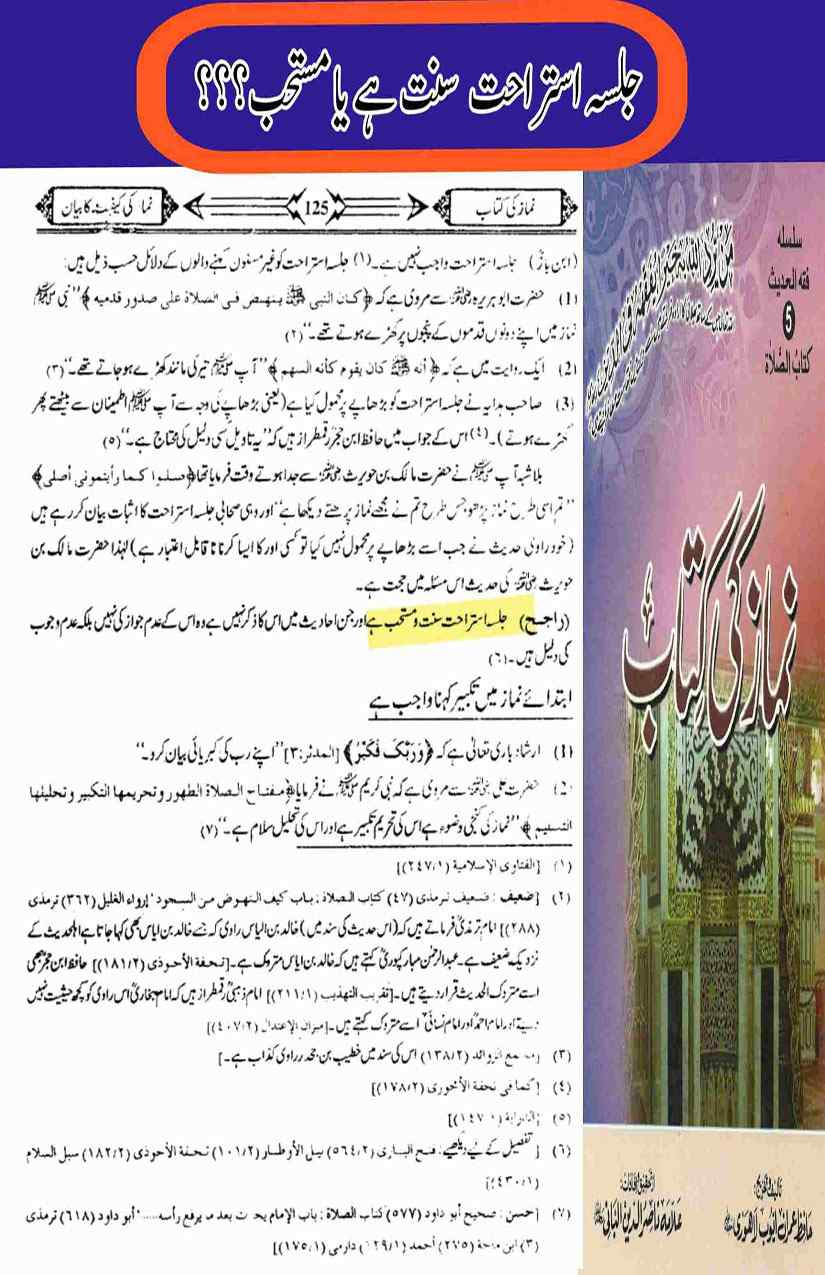 جلسہ استراحت سنت ہے یا مستحب؟؟؟
نماز کی کتاب 125 نماز کی کیفیت کا بیان
(ابن بازؒ) جلسہ استراحت واجب نہیں ہے۔(۱) جلسہ استراحت کو غیر مسنون کہنے والوں کے دلائل حسب ذیل ہیں:
(1) حضرت ابو ہریرہ رضی اللہ عنہ سے مروی ہے کہ ﴿كان النبى ﷺ ينهض فى الصلاة على صدور قدميه﴾ "نبی ﷺ
نماز میں اپنے دونوں قدموں کے پنجوں پر کھڑے ہوتے تھے۔"(۲)
(2) ایک روایت میں ہے کہ ﴿أنه ﷺ كان يقوم كأنه السهم﴾ "آپ ﷺ تیر کی مانند کھڑے ہو جاتے تھے۔"(۳)
(3) صاحب ہدایہ نے جلسہ استراحت کو بڑھاپے پر محمول کیا ہے (یعنی بڑھاپے کی وجہ سے آپ ﷺ اطمینان سے بیٹھتے پھر
کھڑے ہوتے)۔(۴) اس کے جواب میں حافظ ابن حجرؒ رقمطراز ہیں کہ "یہ تاویل کسی دلیل کی محتاج ہے۔"(۵)
بلاشبہ آپ ﷺ نے حضرت مالک بن حویرث رضی اللہ عنہ سے جدا ہوتے وقت فرمایا تھا ﴿صلوا كما رأيتمونى أصلى﴾
"تم اسی طرح نماز پڑھو جس طرح تم نے مجھے نماز پڑھتے دیکھا ہے" اور وہی صحابی جلسہ استراحت کا اثبات بیان کر رہے ہیں
(خود راوی حدیث نے جب اسے بڑھاپے پر محمول نہیں کیا تو کسی اور کا ایسا کرنا نا قابل اعتبار ہے) لہذا حضرت مالک بن
حویرث رضی اللہ عنہ کی حدیث اس مسئلہ میں حجت ہے۔
(راجح) جلسہ استراحت سنت و مستحب ہے اور جن احادیث میں اس کا ذکر نہیں ہے وہ اس کے عدم جواز کی نہیں بلکہ عدم وجوب
کی دلیل ہیں۔(۶)
ابتدائے نماز میں تکبیر کہنا واجب ہے
(1) ارشاد باری تعالی ہے کہ ﴿وَرَبَّكَ فَكَبِّرْ﴾ [المدثر:۳] "اپنے رب کی کبریائی بیان کرو۔"
(2) حضرت علی رضی اللہ عنہ سے مروی ہے کہ نبی کریم ﷺ نے فرمایا ﴿مفتاح الصلاة الطهور وتحريمها التكبير وتحليلها
التسليم﴾ "نماز کی کنجی وضوء ہے اس کی تحریم تکبیر ہے اور اس کی تحلیل سلام ہے۔"(۷)
(۱) [الفتاوى الإسلامية (۲۴۷/۱)]
(۲) [ضعيف : ضعيف ترمذى (۴۷) كتاب الصلاة : باب كيف النهوض من السجود' إرواء الغليل (۳۶۲) ترمذى
(۲۸۸)] امام ترمذیؒ فرماتے ہیں کہ (اس حدیث کی سند میں) خالد بن الیاس راوی کہ جسے خالد بن ایاس بھی کہا جاتا ہے اہلحدیث کے
نزدیک ضعیف ہے۔ عبدالرحمٰن مبارکپوریؒ کہتے ہیں کہ خالد بن ایاس متروک ہے۔[تحفة الأحوذى (۱۸۱/۲)] حافظ ابن حجرؒ بھی
اسے متروک الحدیث قرار دیتے ہیں۔[تقريب التهذيب (۲۱۱/۱)] امام ذہبیؒ رقمطراز ہیں کہ امام بخاریؒ اس راوی کو کچھ حیثیت نہیں
دیتے اور امام احمدؒ اور امام نسائیؒ اسے متروک کہتے ہیں۔[ميزان الإعتدال (۴۰۷/۲)]
(۳) [مجمع الزوائد (۱۳۸/۲) اس کی سند میں خطیب بن جحدر راوی کذاب ہے۔]
(۴) [كما فى تحفة الأحوذى (۱۷۸/۲)]
(۵) [الدراية (۱۴۷۰)]
(۶) [تفصیل کے لیے دیکھیے : فتح البارى (۵۶۴/۲) نيل الأوطار (۱۰۱/۲) تحفة الأحوذى (۱۸۲/۲) سبل السلام
(۴۳۰/۱)]
(۷) [حسن : صحيح أبو داود (۵۷۷) كتاب الصلاة : باب الإمام يحدث بعد ما يرفع رأسه.....' أبو داود (۶۱۸) ترمذى
(۳) ابن ماجة (۲۷۵) أحمد (۱۲۹/۱) دارمى (۱۷۵/۱)]
سلسلہ
فقہ الحدیث
5
کتاب الصلاۃ
نماز کی کتاب
حافظ عمران ایوب لاہوری
علامہ ناصر الدین البانی